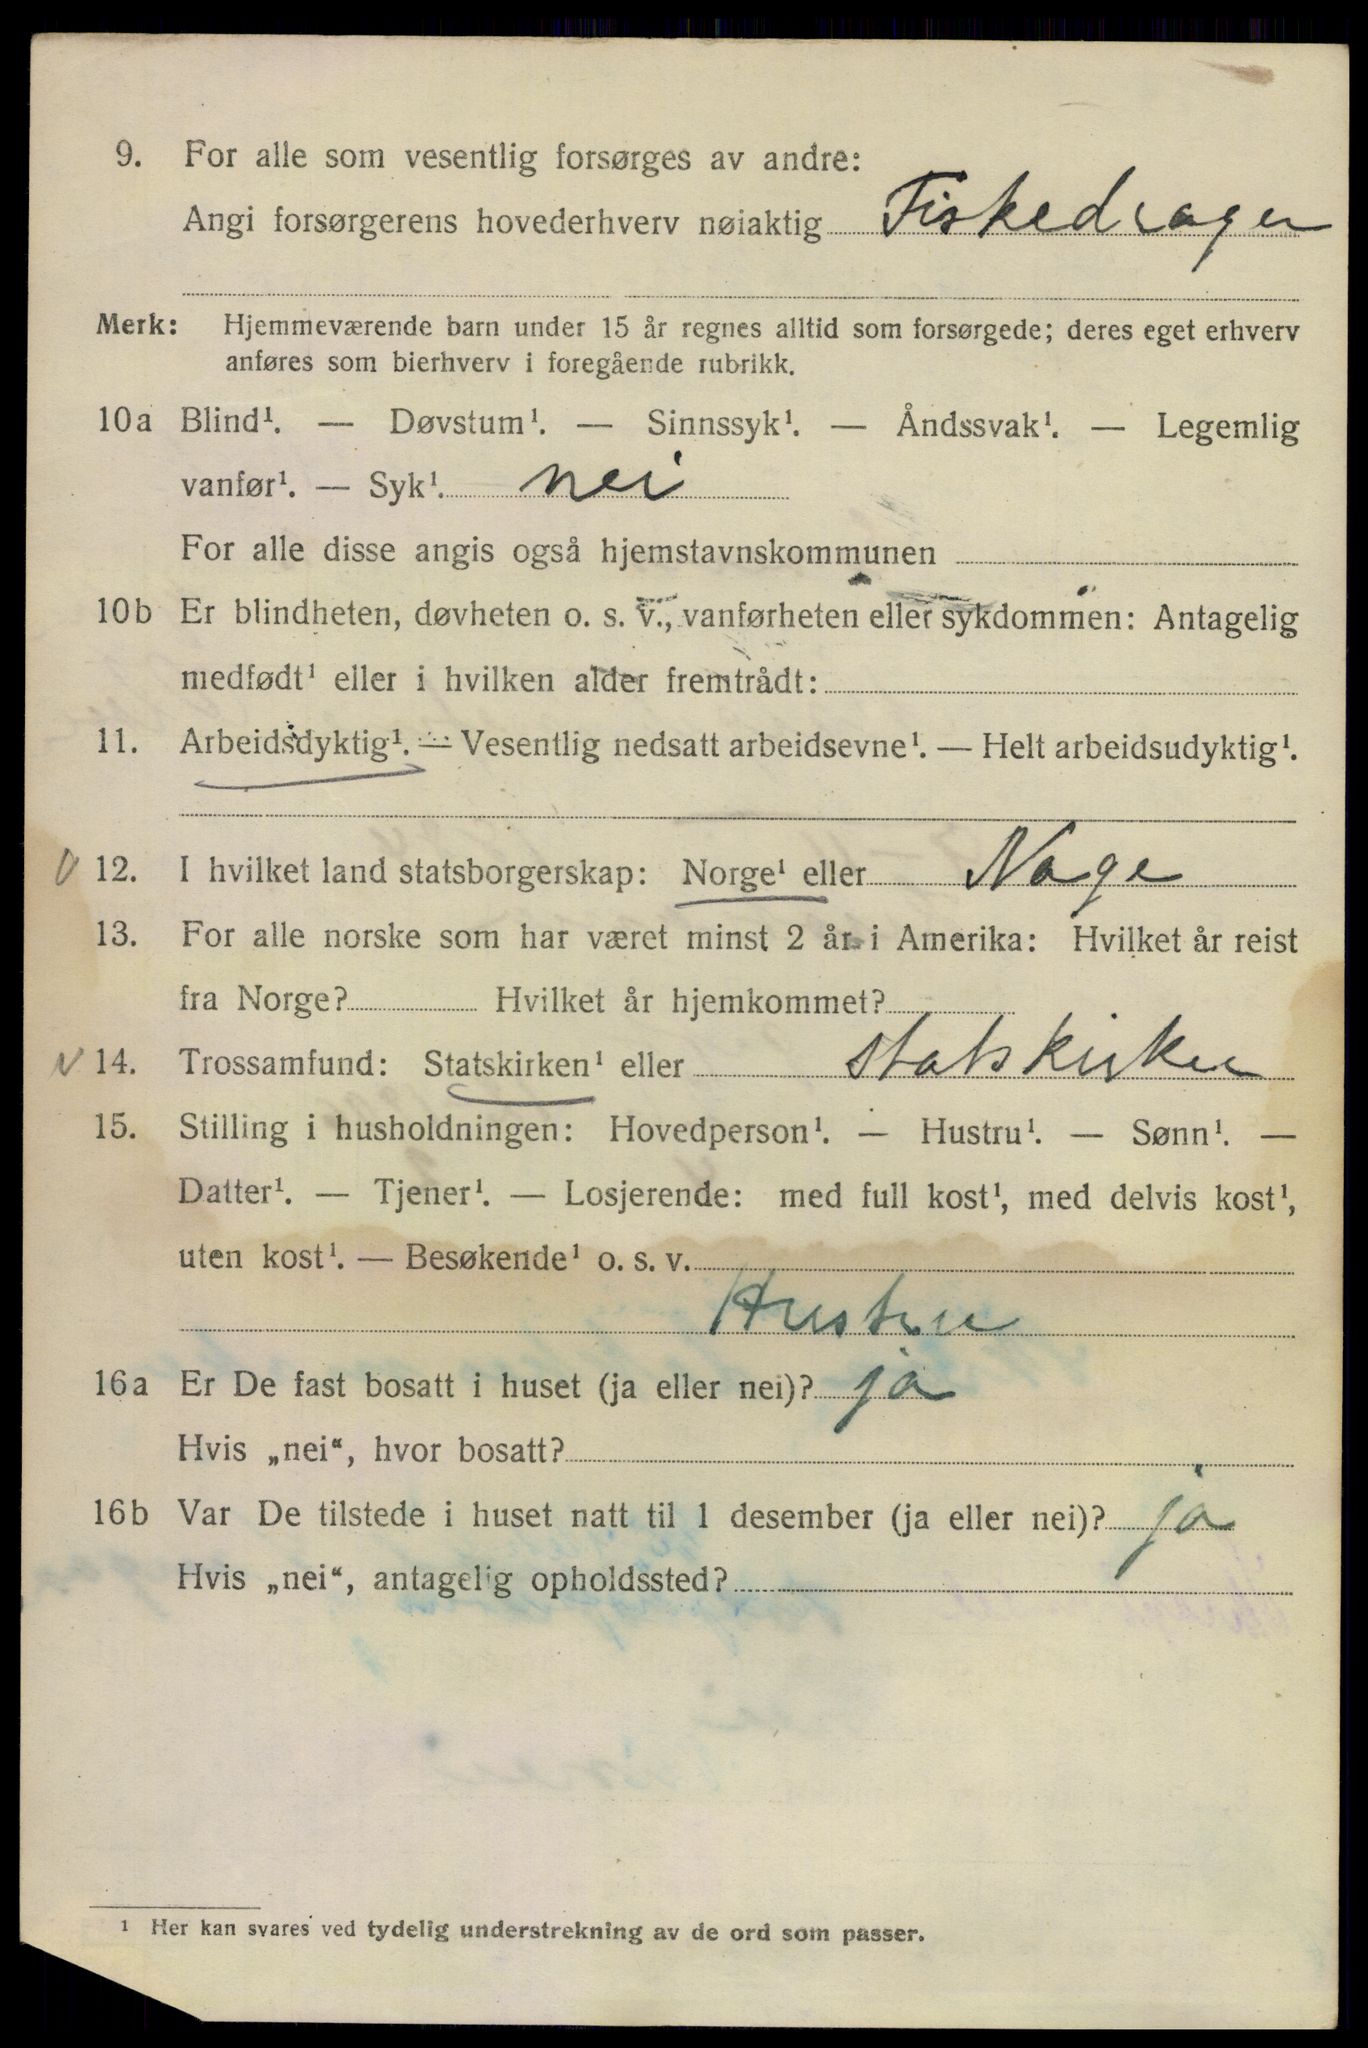 9. For alle som vesentlig forsørges av andre:
Angi forsørgerens hovederhverv nøiaktig Fiskedrager
Merk: Hjemmeværende barn under 15 år regnes alltid som forsørgede; deres eget erhverv
anføres som bierhverv i foregående rubrikk.
10a Blind¹. — Døvstum¹. — Sinnssyk¹. — Åndssvak¹. — Legemlig
vanfør¹. — Syk¹. nei
For alle disse angis også hjemstavnskommunen
10b Er blindheten, døvheten o. s. v., vanførheten eller sykdommen: Antagelig
medfødt¹ eller i hvilken alder fremtrådt:
11. Arbeidsdyktig¹. — Vesentlig nedsatt arbeidsevne¹. — Helt arbeidsudyktig¹.
12. I hvilket land statsborgerskap: Norge¹ eller Noge
13. For alle norske som har været minst 2 år i Amerika: Hvilket år reist
fra Norge? Hvilket år hjemkommet?
14. Trossamfund: Statskirken¹ eller statskirken
15. Stilling i husholdningen: Hovedperson¹. — Hustru¹. — Sønn¹. —
Datter¹. — Tjener¹. — Losjerende: med full kost¹, med delvis kost¹,
uten kost¹. — Besøkende¹ o. s. v.
Hustru
16a Er De fast bosatt i huset (ja eller nei)? ja
Hvis „nei“, hvor bosatt?
16b Var De tilstede i huset natt til 1 desember (ja eller nei)? ja
Hvis „nei“, antagelig opholdssted?
¹ Her kan svares ved tydelig understrekning av de ord som passer.